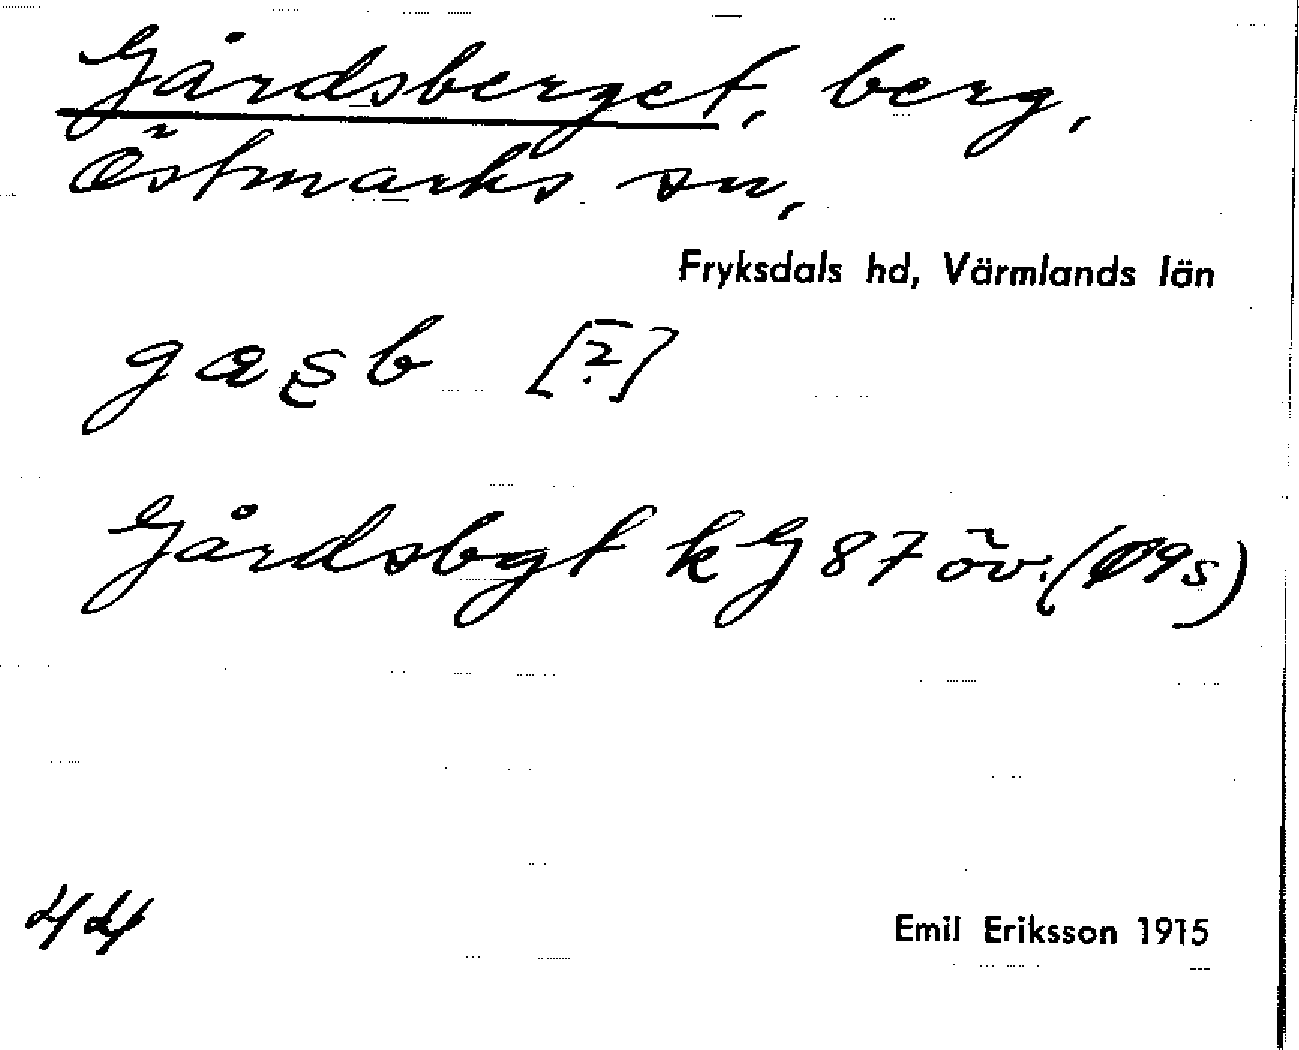 Gårdsberget, berg,
Östmarks sn,
Fryksdals hd, Värmlands län
[?]
Gårdsbgt kG 87 öv. (Ø9s)
44
Emil Eriksson 1915